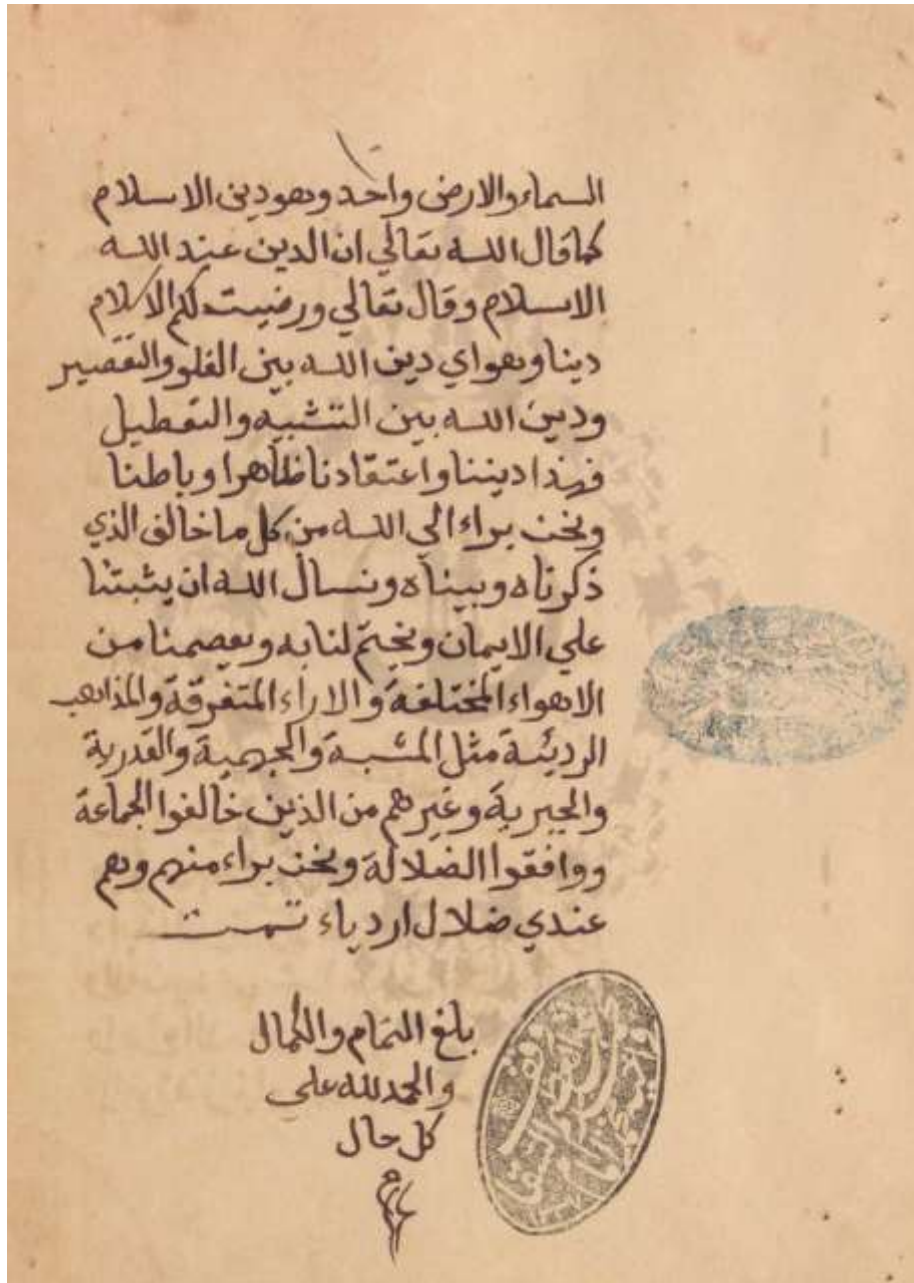 السماء والارض واحد وهو دين الاسلام
كما قال الله تعالي ان الدين عند الله
الاسلام وقال تعالي ورضيت لكم الاسلام
دينا وهو اي دين الله بين الغلو والتقصير
ودين الله بين التشبيه والتعطيل
فهذا ديننا واعتقادنا ظاهرا وباطنا
ونحن براء الي الله من كل ما خالف الذي
ذكرناه وبيناه ونسال الله ان يثبتنا
علي الايمان ويختم لنا به ويعصمنا من
الاهواء المختلفة والاراء المتفرقة والمذاهب
الرديئة مثل المشبة والجهمية والقدرية
والجبرية وغيرهم من الذين خالفوا الجماعة
ووافقوا الضلالة ونحن براء منهم وهم
عندي ضلال اردياء تمت
بلغ التمام والكمال
والحمد لله على
كل حال